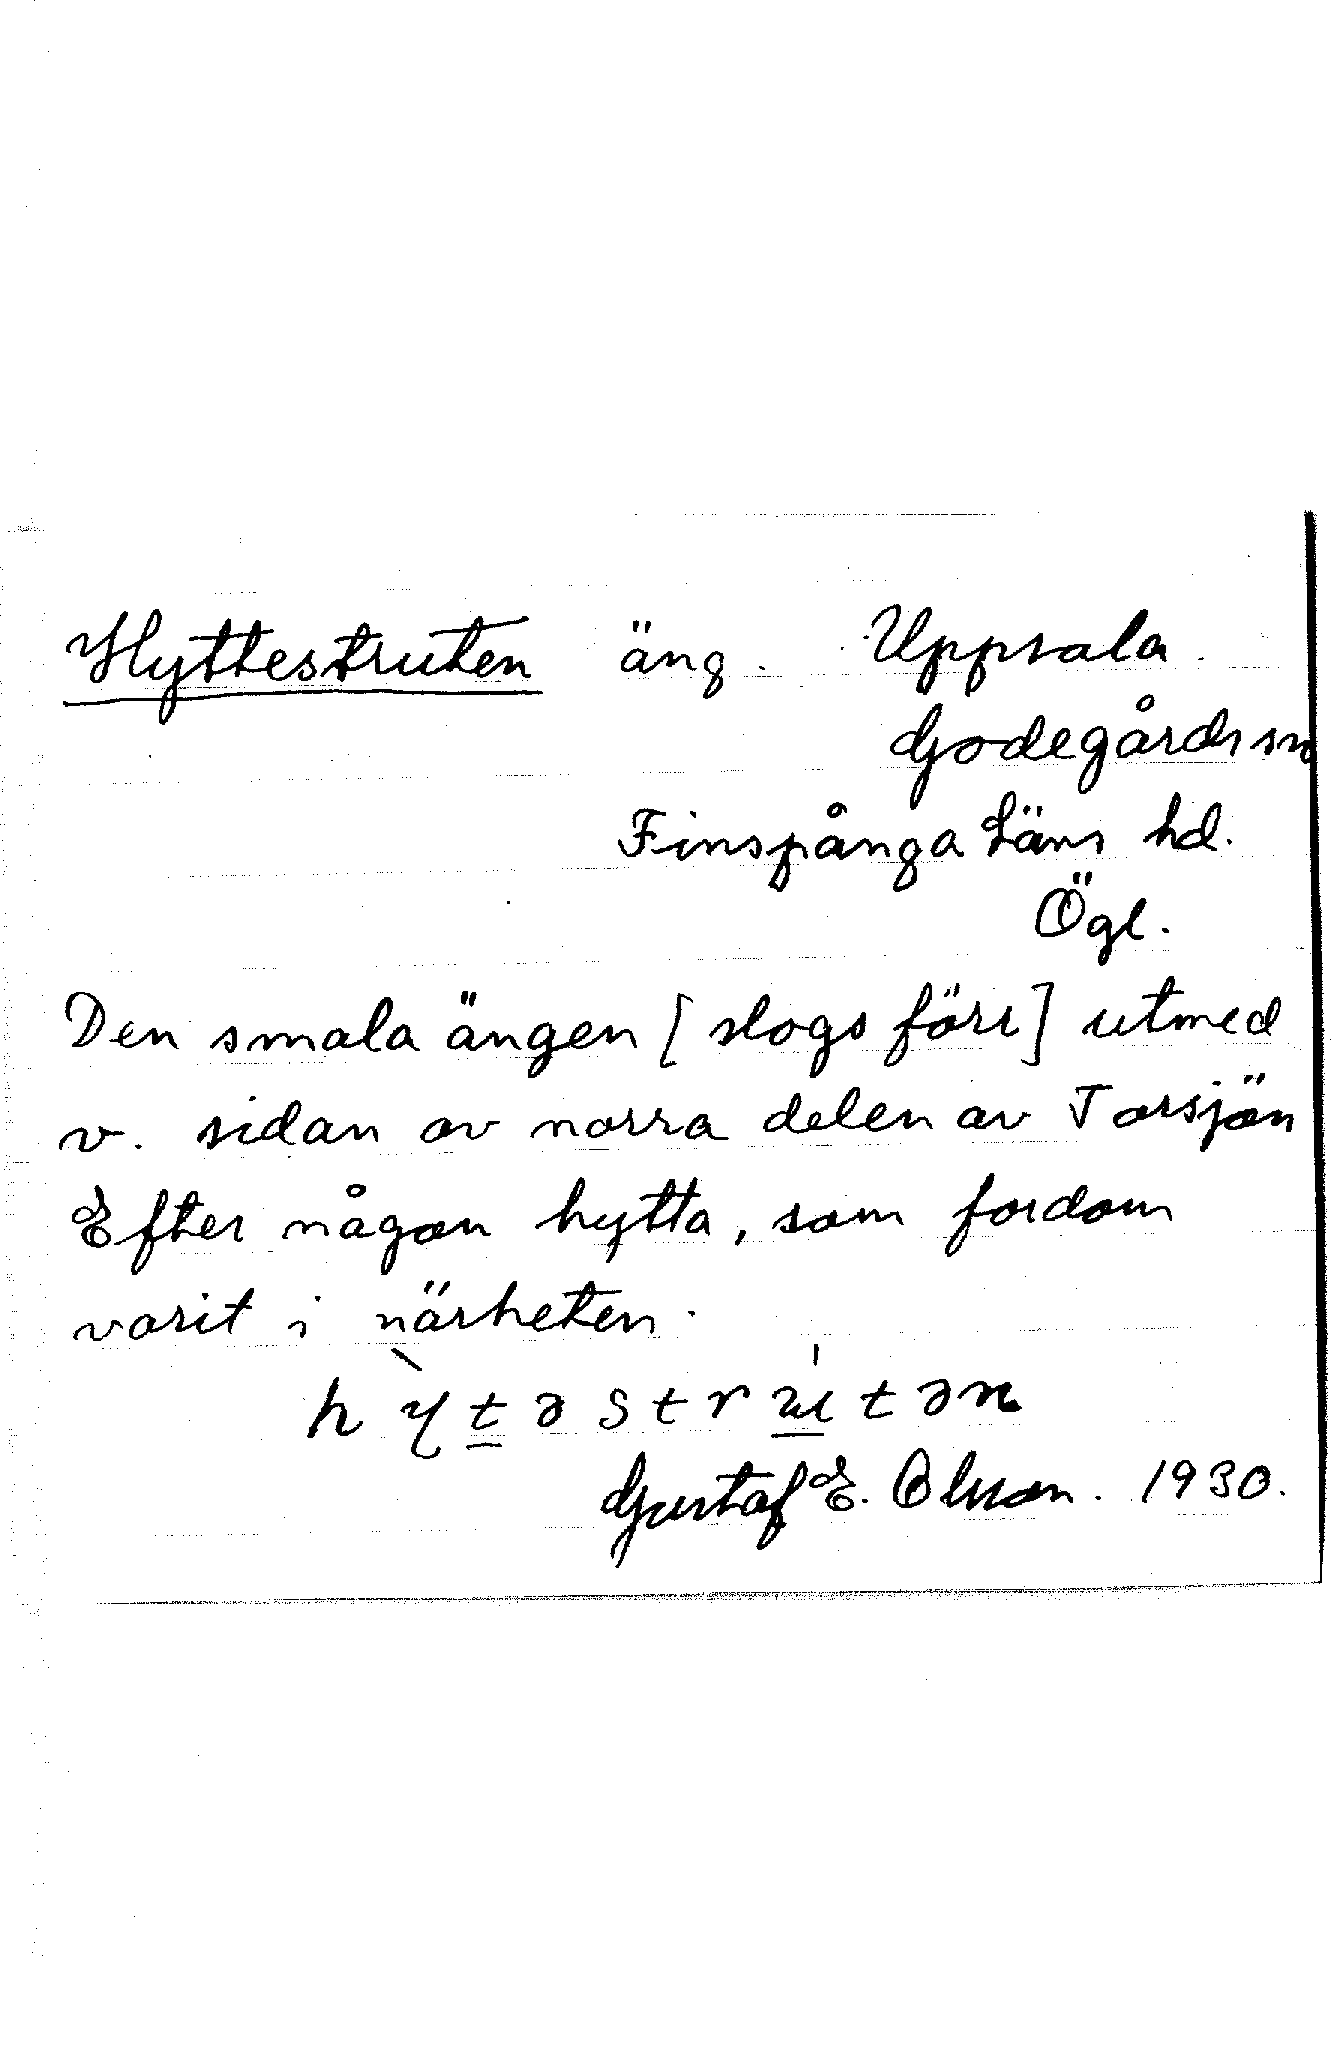 Hyttestruten äng. Uppsala.
Godegårds sn
Finspånga Läns hd.
Ögl.
Den smala ängen [slogs förr] utmed
v. sidan av norra delen av Torsjön
Efter någon hytta, som fordom
varit i närheten.
hỳtəstrútən
Gustaf E. Olsson. 1930.